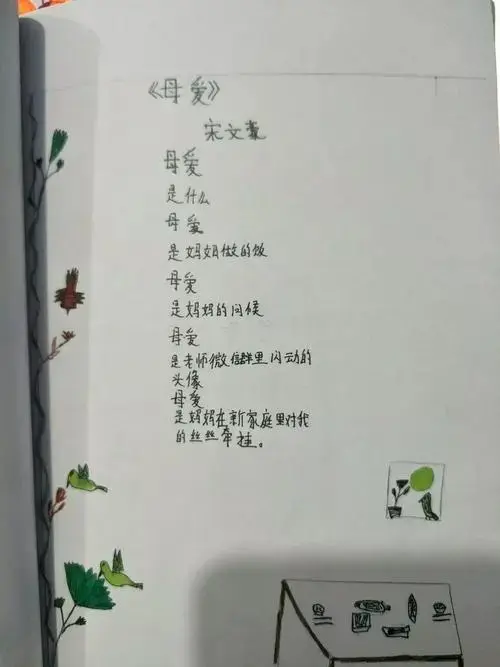 《母爱》
宋文豪
母爱
是什么
母爱
是妈妈做的饭
母爱
是妈妈的问候
母爱
是老师微信群里闪动的
头像
母爱
是妈妈在新家庭里对我
的丝丝牵挂。